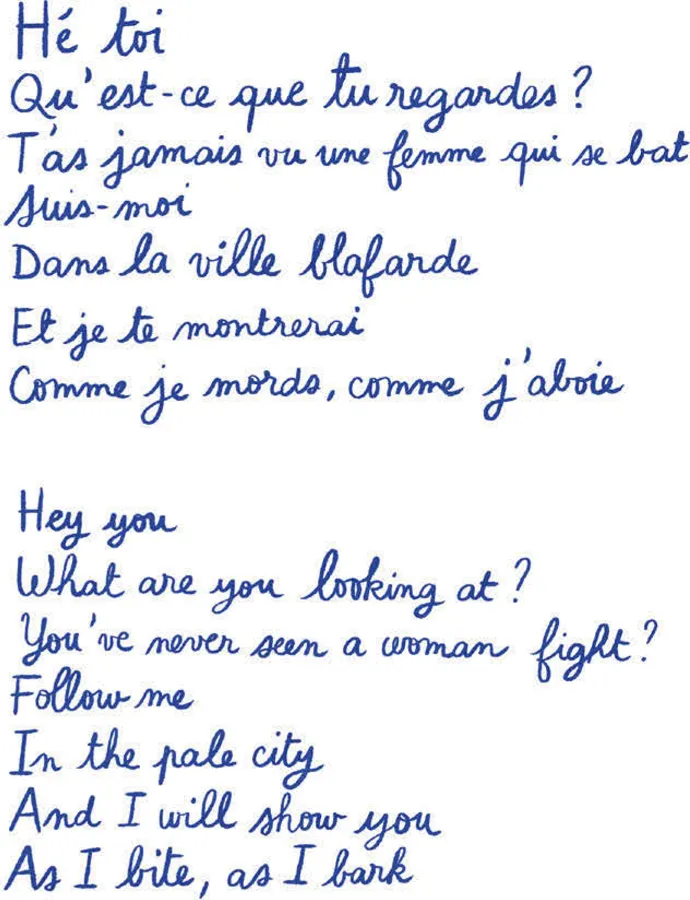 Hé toi
Qu'est-ce que tu regardes ?
T'as jamais vu une femme qui se bat
Suis-moi
Dans la ville blafarde
Et je te montrerai
Comme je mords, comme j'aboie
Hey you
What are you looking at ?
You've never seen a woman fight ?
Follow me
In the pale city
And I will show you
As I bite, as I bark